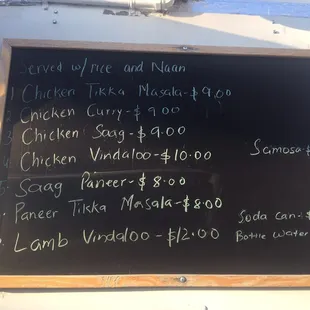 Served w/rice and Naan
1 Chicken Tikka Masala-$9.00
2 Chicken Curry-$9.00
3 Chicken Saag-$9.00
4 Chicken Vindaloo-$10.00
Saag Paneer-$8.00
Paneer Tikka Masala-$8.00
Lamb Vindaloo-$12.00
Samosa-$
Soda Can-$
Bottle Water